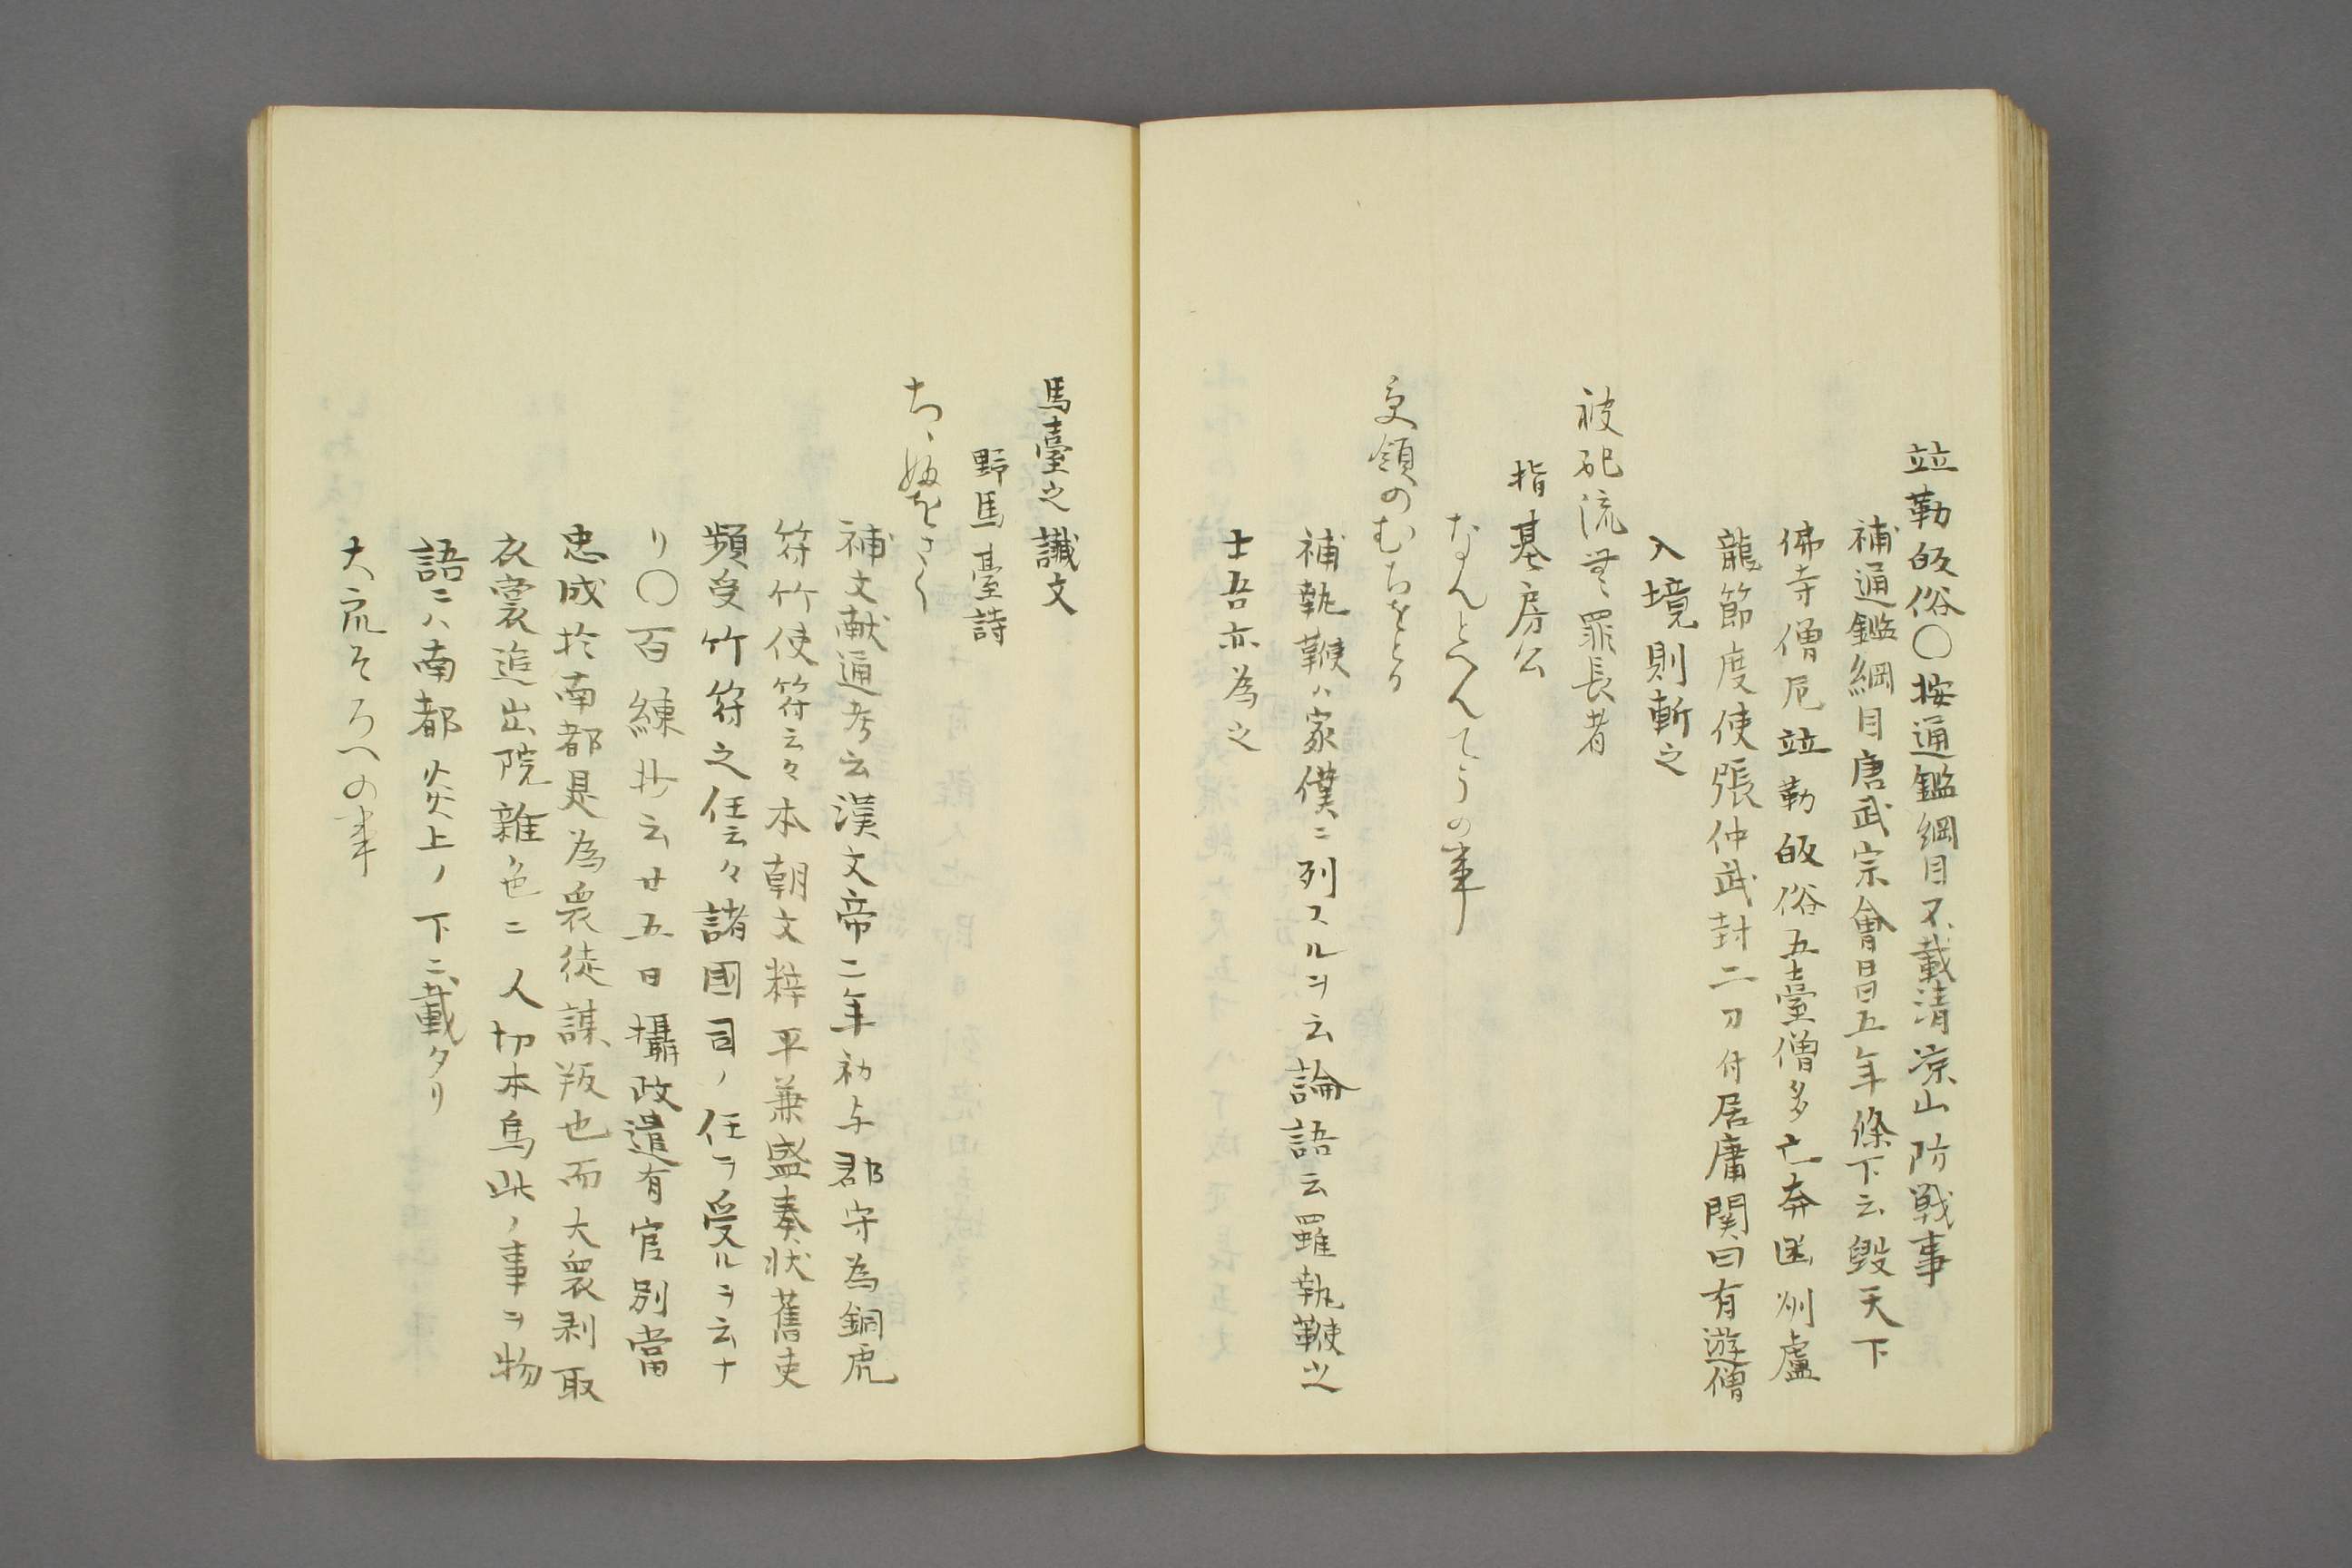 竝勒皈俗〇按通鑑綱目不載清凉山防戦事
補通鑑綱目唐武宗會昌五年條下云毀天下
佛寺僧尼竝勒皈俗五臺僧多亡奔幽州盧
龍節度使張仲武封二刀付居庸関曰有遊僧
入境則斬之
被犯流無罪長者
指基房公
なんとへんてうの事
受領のむちをとり
補執鞭ハ家僕ニ列スルヲ云論語云雖執鞭之
士吾亦為之
馬臺之讖文
野馬臺詩
ちゝぬをさく
補文献通考云漢文帝二年初与郡守為銅虎
符竹使符云々本朝文粹平兼盛奏状舊吏
頻受竹符之任云々諸國司ノ任ヲ受ルヲ云ナ
リ〇百練抄云廿五日攝政遣有官別當
忠成於南都是為衆徒謀叛也而大衆剥取
衣裳追出院雜色二人切本鳥此ノ事ヲ物
語ニハ南都炎上ノ下ニ載タリ
大衆そろへの事